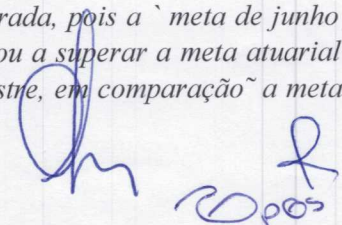 rada, pois a ` meta de junho
ou a superar a meta atuarial
stre, em comparação ˜ a meta